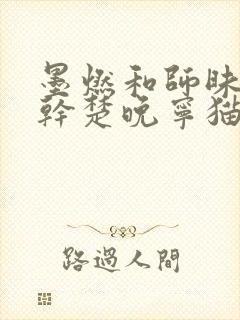 墨燃和師昧
幹楚晚寧貓
路過人間